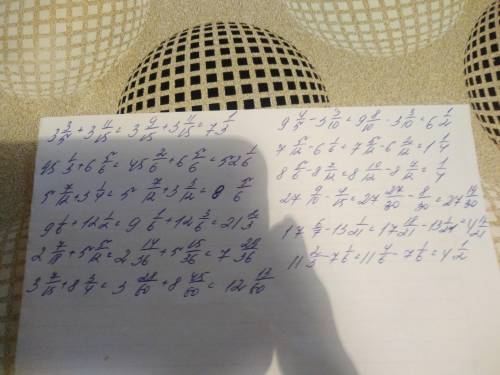 3 3/5 + 3 11/15 = 3 9/15 + 3 11/15 = 7 1/3
45 1/3 + 6 5/6 = 45 2/6 + 6 5/6 = 52 1/6
5 7/12 + 3 1/4 = 5 7/12 + 3 3/12 = 8 5/6
9 1/6 + 12 1/2 = 9 1/6 + 12 3/6 = 21 2/3
2 7/18 + 5 5/12 = 2 14/36 + 5 15/36 = 7 29/36
3 7/15 + 8 3/4 = 3 28/60 + 8 45/60 = 12 13/60
9 4/5 - 3 3/10 = 9 8/10 - 3 3/10 = 6 1/2
7 5/12 - 6 1/6 = 7 5/12 - 6 2/12 = 1 1/4
8 5/6 - 8 7/12 = 8 10/12 - 8 7/12 = 1/4
27 9/10 - 7/15 = 27 27/30 -
17 6/7 - 13 1/21 = 17 18/21 - 13 1/21 = 4 17/21
11 2/3 - 7 1/6 = 11 4/6 - 7 1/6 = 4 1/2